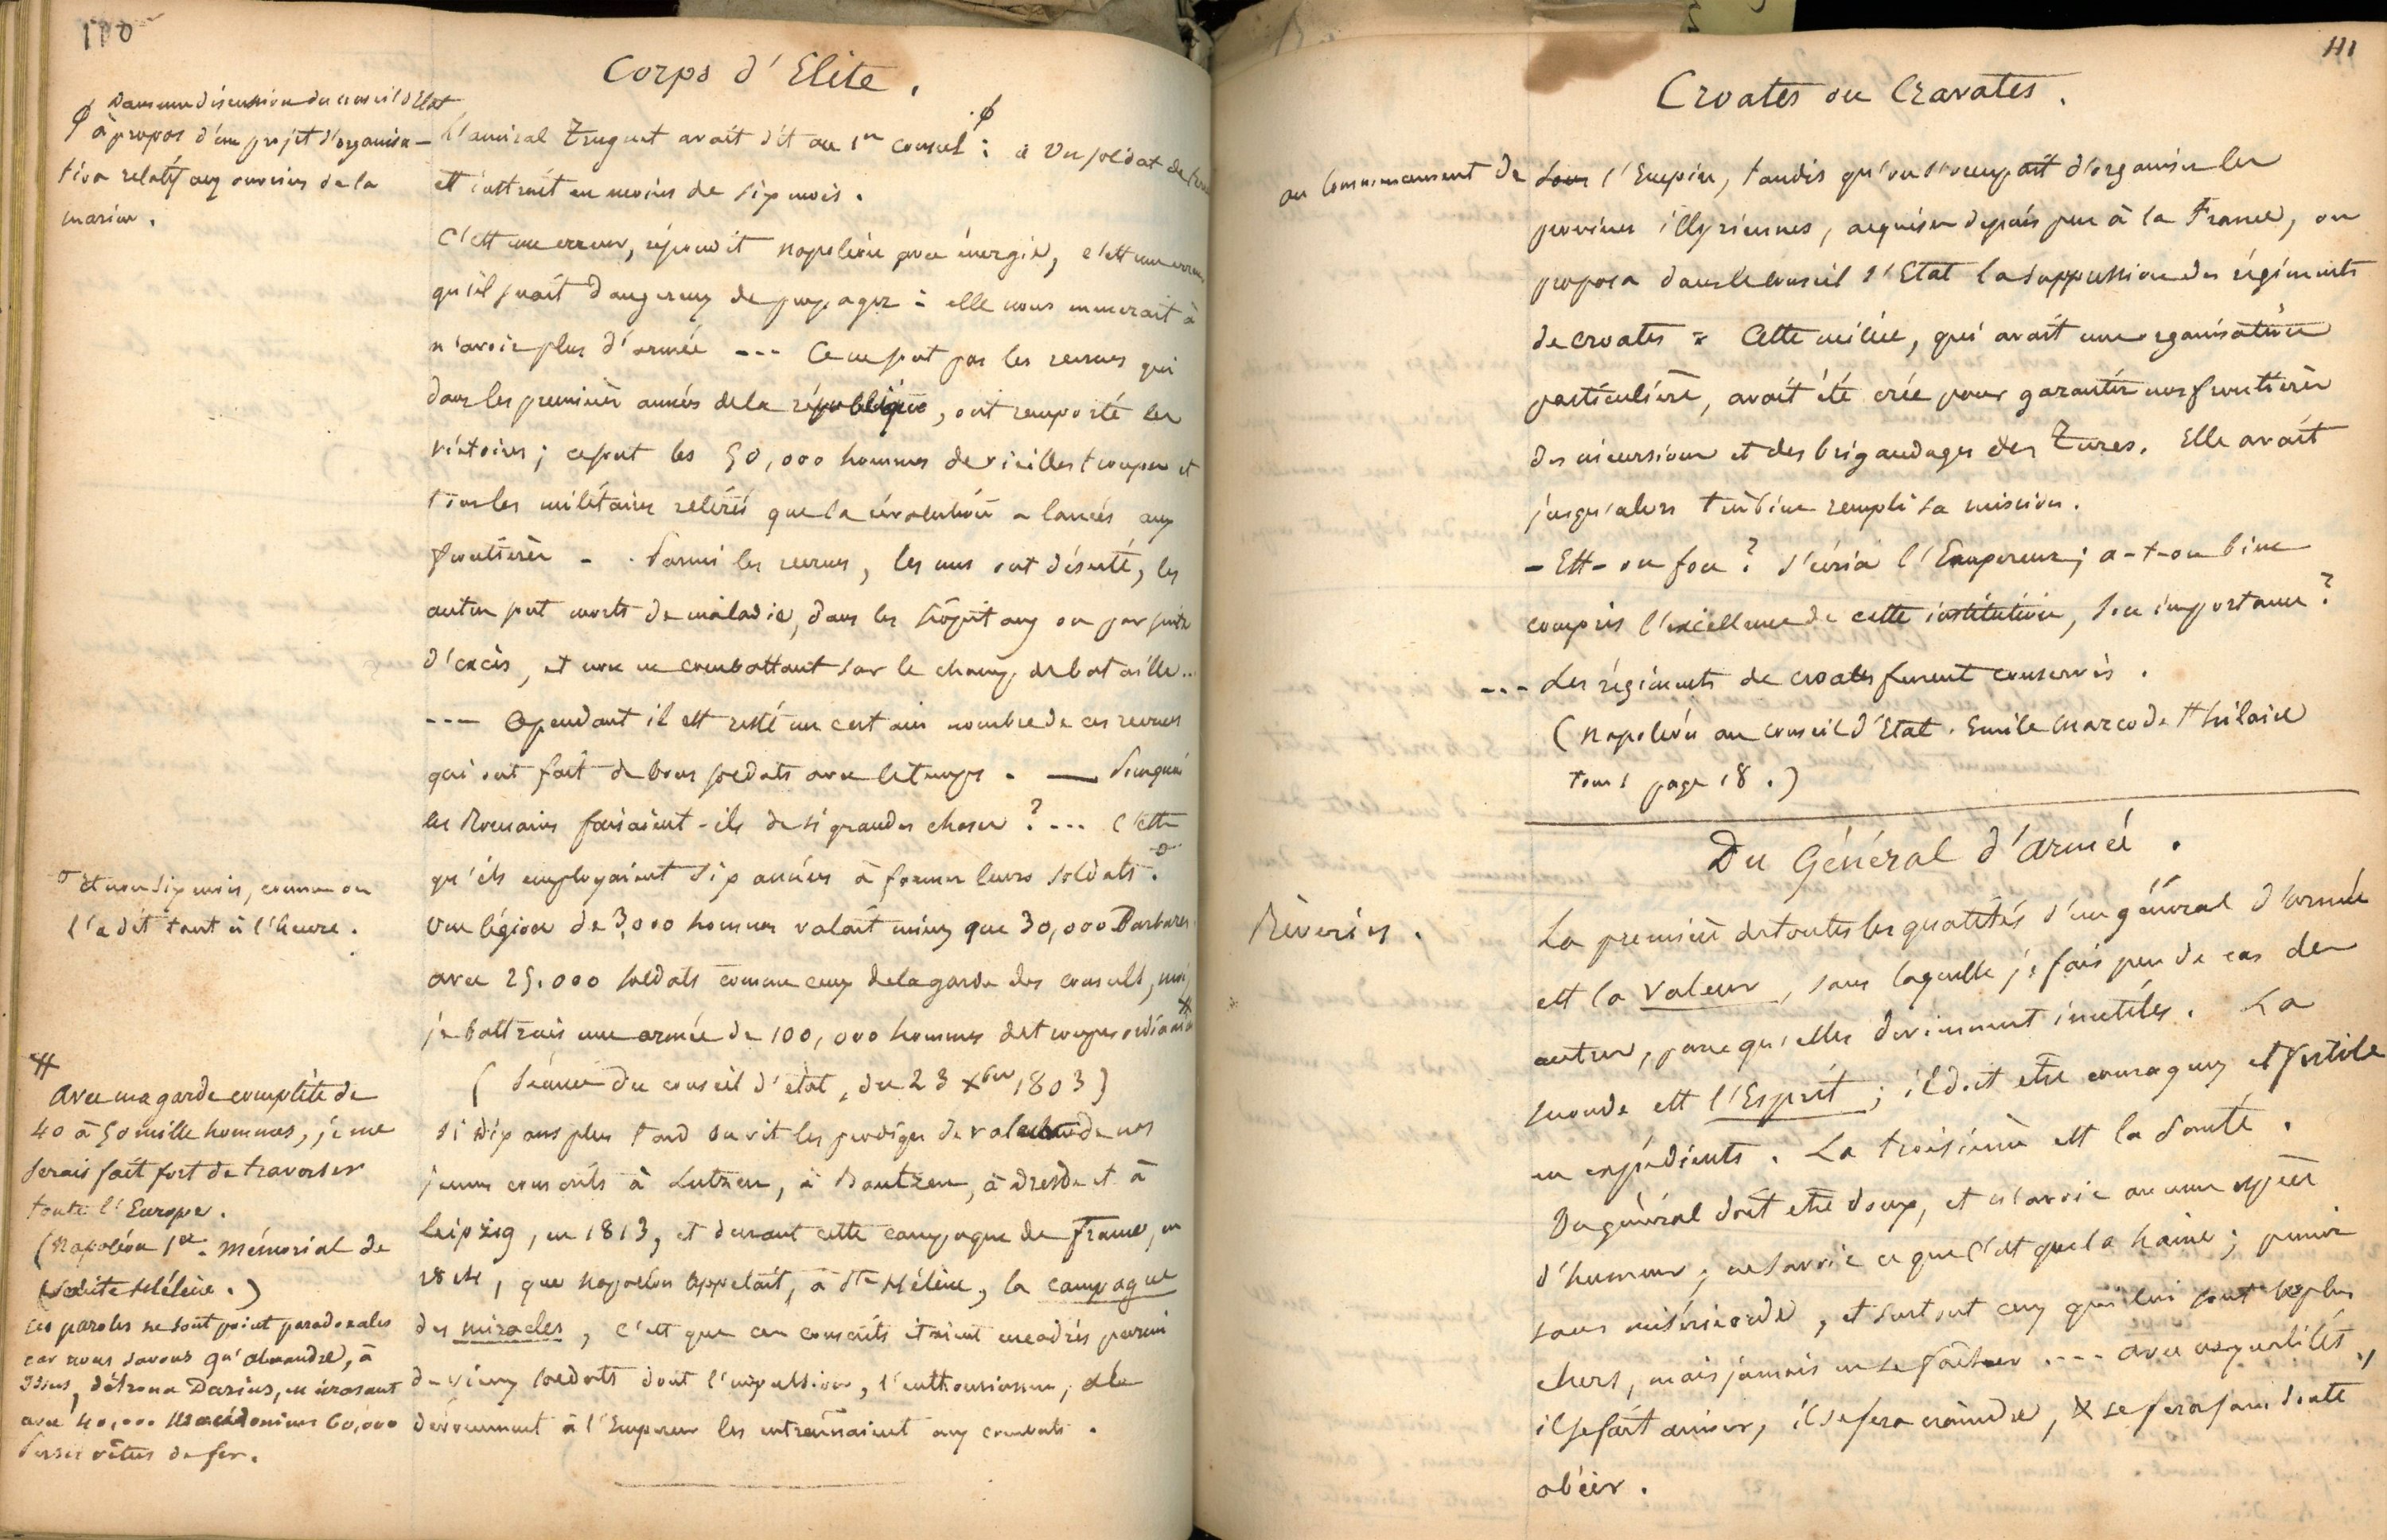 110
Corps d'Elite.
Dans une discussion du conseil d'Etat
à propos d'un projet d'organisa-
tion relatif aux ouvriers de la
marine.
L'amiral Truguet avait dit au 1er Consul : « Un soldat de terre
est instruit en moins de six mois.
C'est une erreur, répondit Napoléon avec énergie, c'est une erreur
qu'il serait dangereux de propager : elle nous mènerait à
n'avoir plus d'armée --- Ce ne sont pas les recrues qui
dans les premières années de la république, ont remporté les
victoires ; ce sont les 50,000 hommes de vieilles troupes et
tous les militaires retirés que la révolution a lancés aux
frontières - . Parmi les recrues, les uns ont déserté, les
autres sont morts de maladie, dans les hôpitaux ou par suite
d'excès, et non en combattant sur le champ de bataille...
--- Cependant il est resté un certain nombre de ces recrues
qui ont fait de bons soldats avec le temps. — Pourquoi
les Romains faisaient-ils de si grandes choses ? --- C'est
qu'ils employaient six années à former leurs soldats.
et non six mois, comme on
l'a dit tout à l'heure.
Une légion de 3,000 hommes valait mieux que 30,000 Barbares.
avec 25.000 soldats comme ceux de la garde des consuls, moi,
je battrais une armée de 100,000 hommes de troupes ordinaires
(Séance du conseil d'état, du 23 Xbre 1803)
#
Avec ma garde complète de
40 à 50 mille hommes, je me
serais fait fort de traverser
toute l'Europe.
(Napoléon 1er. Mémorial de
Sainte Hélène.)
ces paroles ne sont point paradoxales
car nous savons qu'Alexandre, à
Issus, détrona Darius, en écrasant
avec 40,000 Macédoniens 60,000
Perses vêtus de fer.
Si dix ans plus tard on vit les prodiges de valeur de nos
jeunes conscrits à Lutzen, à Bautzen, à Dresde et à
Leipzig, en 1813, et durant cette campagne de France, en
1814, que Napoléon appelait, à Ste Hélène, la campagne
des miracles, c'est que ces conscrits étaient encadrés parmi
de vieux soldats dont l'impulsion, l'enthousiasme, et le
dévouement à l'Empereur les entraînaient aux combats.
111
Croates ou Cravates.
au commencement de l'Empire, tandis qu'on s'occupait d'organiser les
provinces illyriennes, acquises depuis peu à la France, on
proposa dans le conseil d'Etat la suppression des régiments
de croates = Cette milice, qui avait une organisation
particulière, avait été crée pour garantir nos frontières
des incursions et des brigandages des Turcs. Elle avait
jusqu'alors très bien rempli sa mission.
- Est-on fou ? s'écria l'Empereur ; a-t-on bien
compris l'excellence de cette institution, son importance ?
--- Les régiments de croates furent conservés.
(Napoléon au conseil d'Etat. Emile Marco de St hilaire
tom 1 page 18.)
Du Général d'armée.
Rêveries.
La première de toutes les qualités d'un général d'armée
est la valeur, sans laquelle je fais peu de cas des
autres, parce qu'elles deviennent inutiles. La
seconde est l'Esprit ; il doit être courageux et fertile
en expédients. La troisième est la santé.
Un général doit être doux, et n'avoir aucune espèce
d'humeur ; ne savoir ce que c'est que la haine ; punir
sans miséricorde, et surtout ceux qui lui sont les plus
chers, mais jamais ne se fâcher --- avec ces qualités,
il se fait aimer, il se fera craindre, & se fera sans doute
obéir.